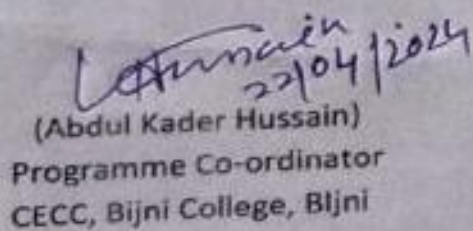 Hussain
22/04/2024
(Abdul Kader Hussain)
Programme Co-ordinator
CECC, Bijni College, BIjni